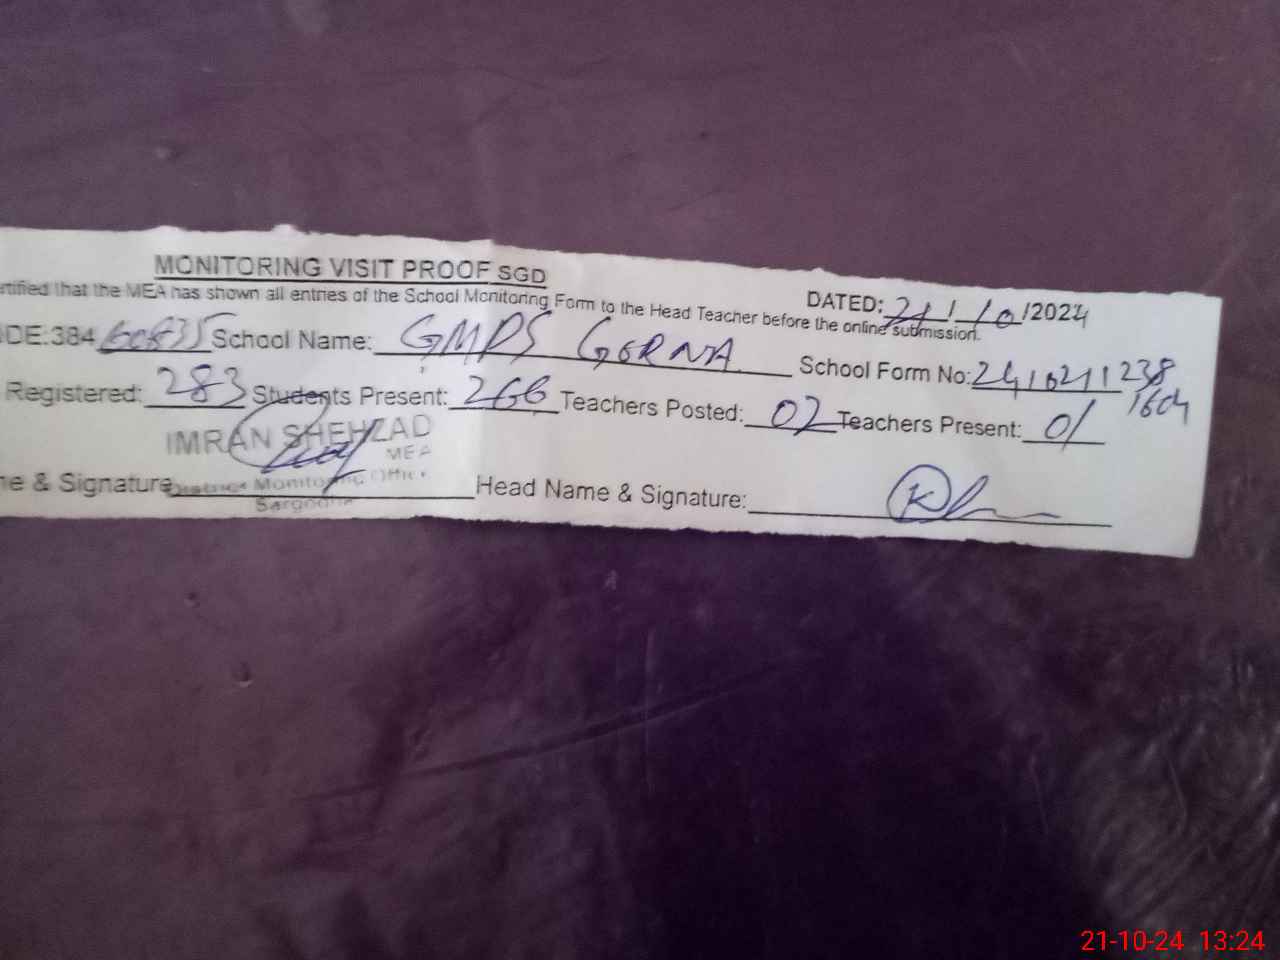 MONITORING VISIT PROOF SGD
DATED: 21/10/2024
rtified that the MEA has shown all entries of the School Monitoring Form to the Head Teacher before the online submission.
DE:384 School Name: GMPS GORNA School Form No: 2410211238
1604
Registered: 283 Students Present: 266 Teachers Posted: 02 Teachers Present: 01
IMRAN SHEHZAD
MEA
District Monitoring Office
Sargodha
ne & Signature Head Name & Signature:
21-10-24 13:24